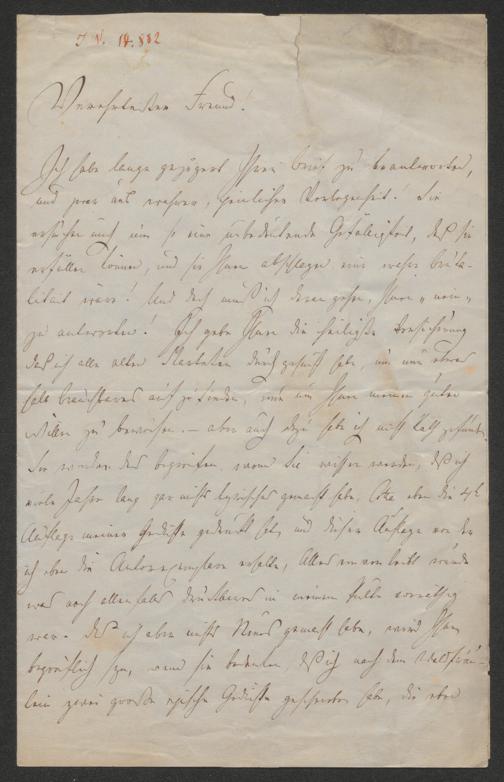 I. N. 18.882
Verehrtester Freund!
Ich habe lange gezögert Ihren Brief zu beantworten,
und zwar aus wahrer, peinlicher Verlegenheit! Sie
ersuchen mich um so eine unbedeutende Gefälligkeit, daß sie
erfüllen können, und sie Ihnen abschlagen eine wahre Bruta-
lität wäre! Und doch muß ich daran gehen, Ihnen „nein"
zu antworten! Ich gebe Ihnen die heiligste Versicherung
daß ich alle alten durch gesucht habe, um nur etwas
halb brauchbares aufzufinden, und um Ihnen meinen guten
Willen zu beweisen. – aber auch dazu habe ich nicht
Sie werden das begreifen, wenn Sie wissen werden, daß ich
viele Jahre lang gar nichts lyrisches gemacht habe, Cotta eben die 4te
Auflage meiner Gedichte gedruckt hat, und dieser Auflage von der
ich eben die Autorexemplare erhalte, Alles einverleibt wurde
was noch allenfalls druckbares in meinem Pulte vorräthig
war. Daß ich aber nichts Neues gemacht habe, wird Ihnen
begreiflich sein, wenn sie bedenken, daß ich nach dem Waldfräu-
lein zwei große epische Gedichte geschrieben habe, die eben